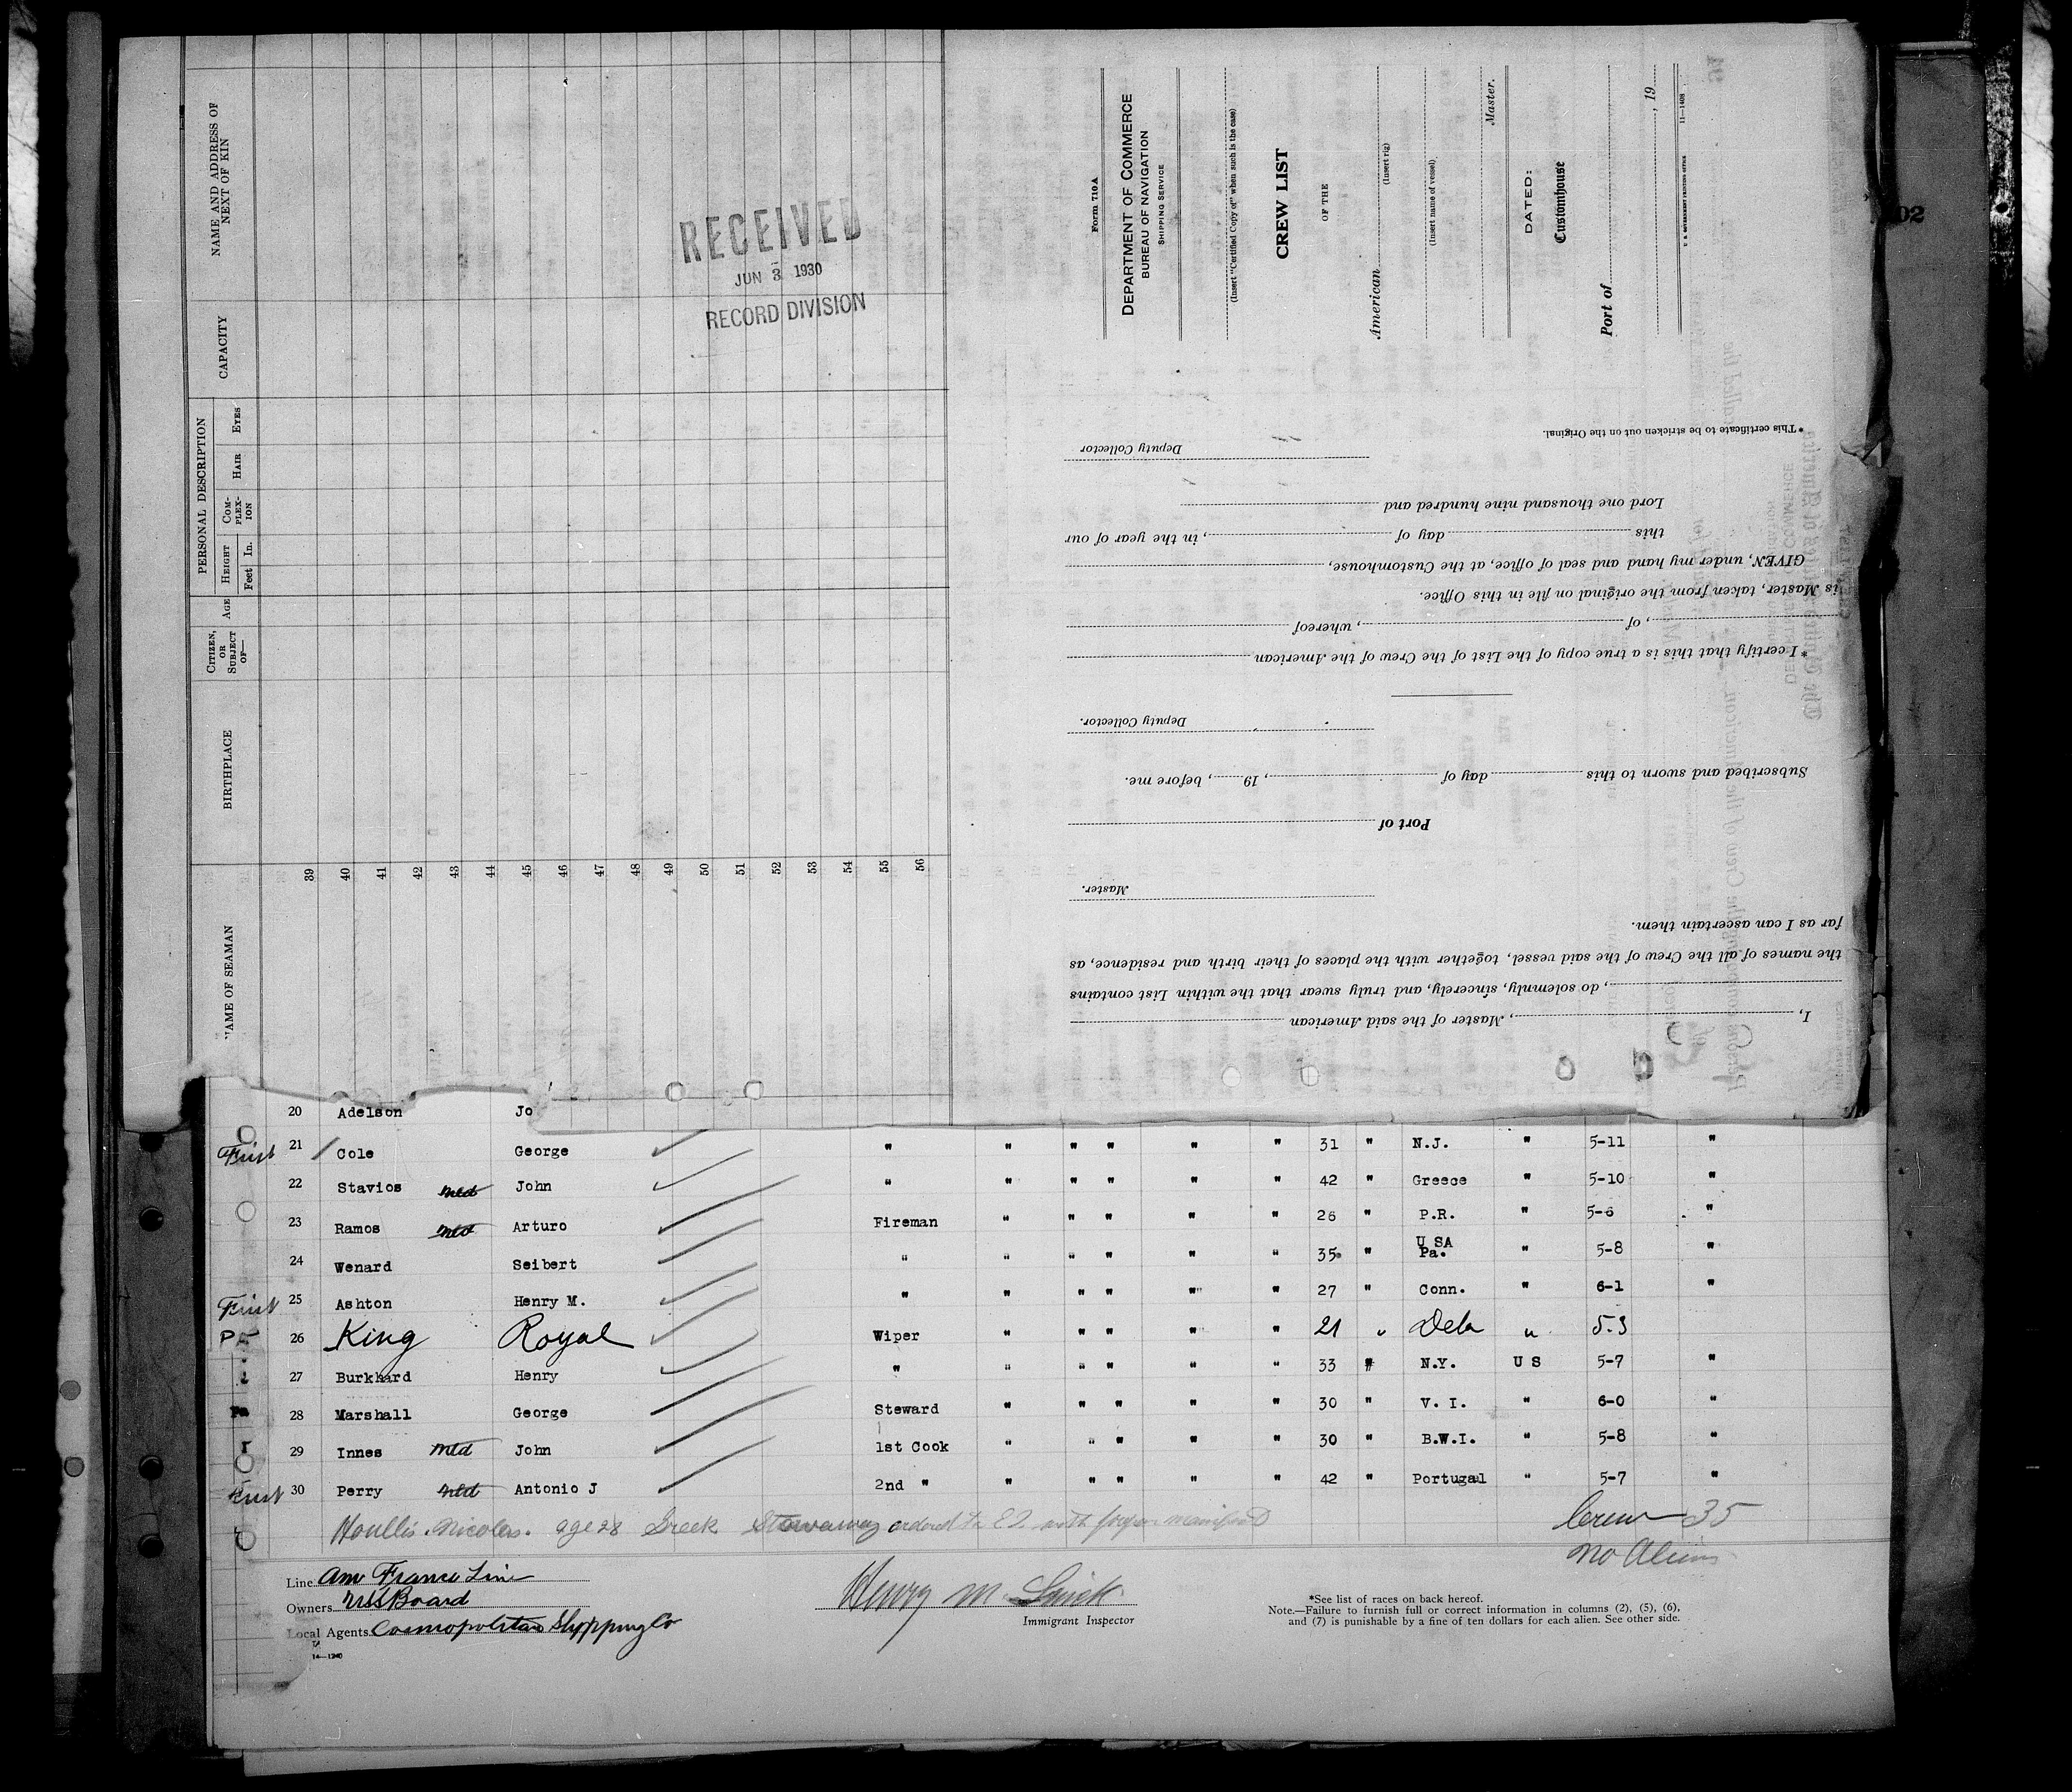 NAME AND ADDRESS OF
NEXT OF KIN
CAPACITY
PERSONAL DESCRIPTION
EYES
HAIR
COM-
PLEX-
ION
HEIGHT
Feet In.
AGE
CITIZEN,
OR
SUBJECT
OF—
BIRTHPLACE
NAME OF SEAMAN
39 40 41 42 43 44 45 46 47 48 49 50 51 52 53 54 55 56
RECEIVED
JUN 3 1930
RECORD DIVISION
Form 710 A
DEPARTMENT OF COMMERCE
BUREAU OF NAVIGATION
SHIPPING SERVICE
(Insert "Certified Copy of" when such is the case)
CREW LIST
OF THE
American
(Insert rig)
(Insert name of vessel)
Master.
DATED:
Customhouse
Port of
, 19
U. S. GOVERNMENT PRINTING OFFICE 11—1408
02
I, , Master of the said American
, do solemnly, sincerely, and truly swear that the within List contains
the names of all the Crew of the said vessel, together with the places of their birth and residence, as
far as I can ascertain them.
Master.
Port of
Subscribed and sworn to this day of , 19 , before me.
Deputy Collector.
*I certify that this is a true copy of the List of the Crew of the American
, of , whereof
is Master, taken from the original on file in this Office.
GIVEN, under my hand and seal of office, at the Customhouse,
this day of , in the year of our
Lord one thousand nine hundred and
Deputy Collector
*This certificate to be stricken out on the Original.
20 Adelson Jo
First 21 Cole George " " " " " " 31 " N.J. " 5-11 "
22 Stavios John " " " " " " 42 " Greece " 5-10 "
23 Ramos Arturo Fireman " " " " " 26 " P.R. " 5-6 "
24 Wenard Seibert " " " " " " 35 " U SA Pa. " 5-8 "
First 25 Ashton Henry M. " " " " " " 27 " Conn. " 6-1 "
26 King Royal Wiper " " " " " 21 " Dela " 5-3
27 Burkhard Henry " " " " " " 33 " N.Y. U S 5-7 "
28 Marshall George Steward " " " " " 30 " V. I. " 6-0 "
29 Innes John 1st Cook " " " " " 30 " B.W.I. " 5-8 "
First 30 Perry Antonio J 2nd " " " " " " 42 " Portugal " 5-7 "
Houllis Nicolas. age 28 Greek Stowaway ordered to E I with proper manifest
Crew 35
no Aliens
Line Am France Line
Owners USS Board
Local Agents Cosmopolitan Shipping Co
14—1240
Henry M.
Immigrant Inspector
*See list of races on back hereof.
Note.—Failure to furnish full or correct information in columns (2), (5), (6),
and (7) is punishable by a fine of ten dollars for each alien. See other side.